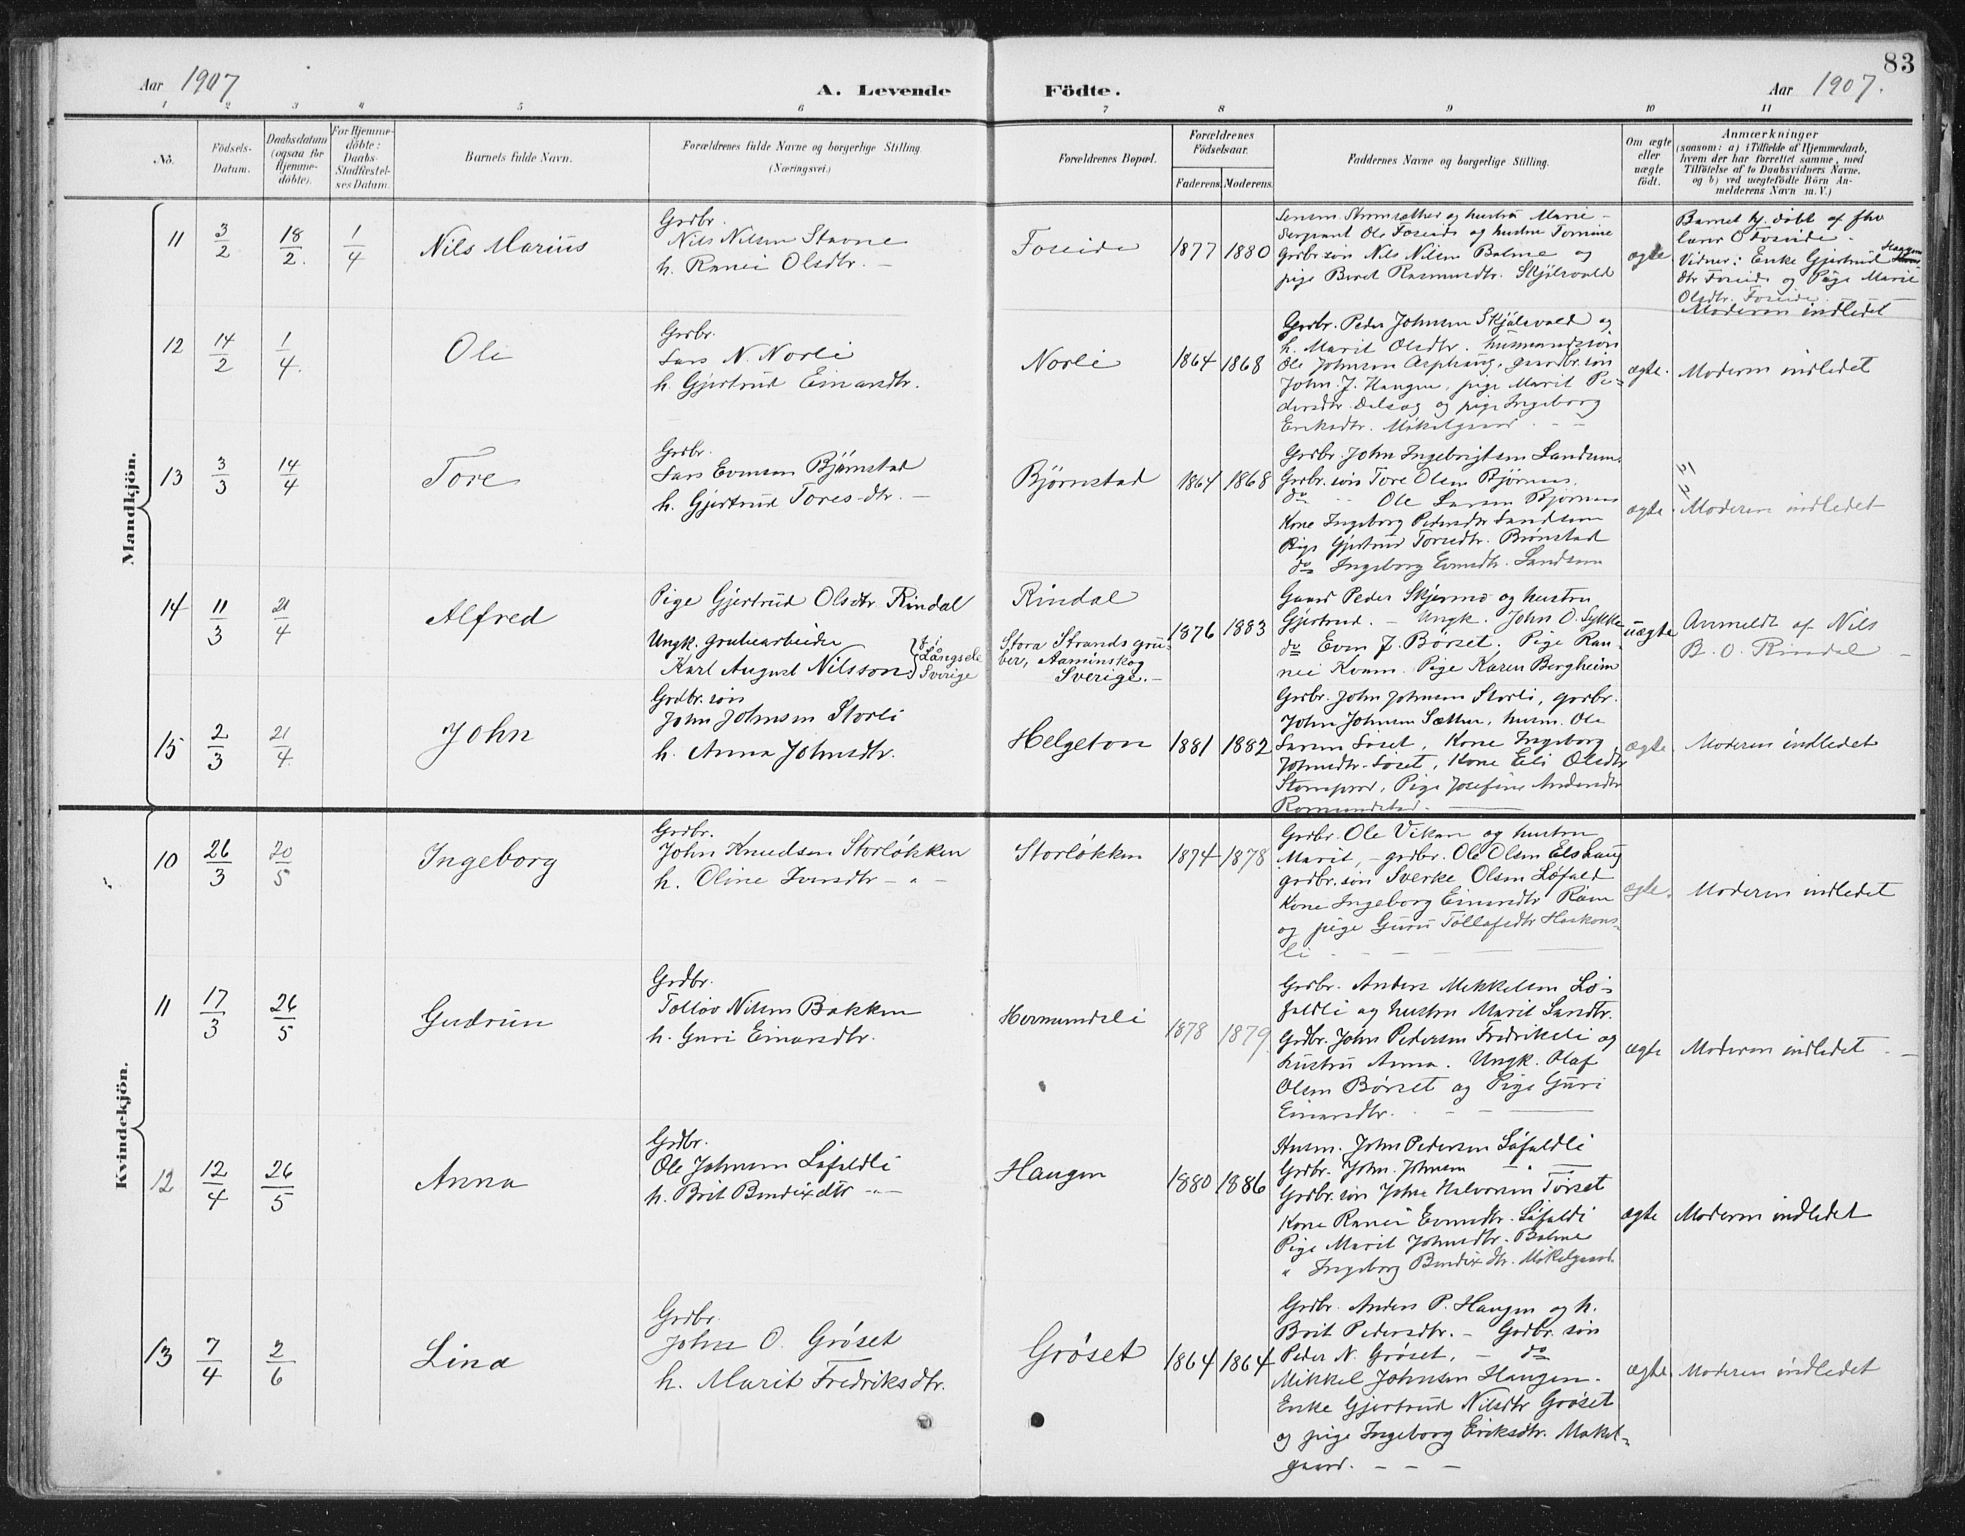 83
Aar 1907
A. Levende
Födte.
Aar 1907.
1 2 3 4 5 6 7 8 9 10 11
No.
Födsels-
Datum.
Daabsdatum
(ogsaa for
Hjemme-
döbte).
For Hjemme-
döbte:
Daabs-
Stadfæstel-
ses Datum.
Barnets fulde Navn.
Forældrenes fulde Navne og borgerlige Stilling.
(Næringsvei.)
Forældrenes Bopæl.
Forældrenes
Födselsaar.
Faderens. Moderens.
Faddernes Navne og borgerlige Stilling.
Om ægte
eller
uægte
födt.
Anmærkninger
(saasom: a) i Tilfælde af Hjemmedaab,
hvem der har forrettet samme, med
Tilföielse af to Daabsvidners Navne.
og b) ved uægtefödte Börn An-
melderens Navn m. V.)
Mandkjön.
11
3/2
18/2.
1/4
Nils Marius
Grdbr.
Nils Nilsen Stavne
h. Ranei Olsdtr. –
Foseide
1877 1880
og hustru Marie –
Sergeant Ole Foseide og hustru
Grdbr.søn Nils Nilsen Bolme og
pige Beret Rasmusdtr. Skjølsvold
ægte
Barnet hj. døbt af
lærer O Foseide.
Vidner: Enke Gjertrud Haagen
dtr Foseide og Pige Marie
Olsdtr. Foseide.
Moderen indledet
12
14/2
1/4.
Ole
Grdbr.
Lars N. Norli
h. Gjertrud Einarsdtr.
Norli
1864 1868
Grdbr. Peder Johnsen Skjølsvold og
h. Marit Olsdtr. husmandssøn
Ole Johnsen Asphaug, gaardbr.søn
John. J. Haugen, pige Marit Pe-
dersdtr. og pige Ingeborg
Eriksdtr. Mikelgaard.
ægte.
Moderen indledet
13
3/3
14/4
Tore
Grdbr.
Lars Evensen Bjørnstad
h. Gjertrud Toresdtr. –
Bjørnstad
1864 1868
Grdbr. John Ingebrigtsen Landsem.
Grdbr. søn Tore Olsen Bjørnaas.
do Ole Larsen Bjørnaas
Kone Ingeborg Pedersdtr Landsem
Pige Gjertrud Toresdtr. Brønstad
do Ingeborg Evensdtr. Landsem
ægte.
Moderen indledet
14
11/3
21/4
Alfred
Pige Gjertrud Olsdtr Rindal
Ungk. grubearbeider
Karl August Nilsson } f. i Långsele Sverige
Rindal
Stora Strands gru-
ber, Aaminskog
Sverige. –
1876 1883
Gaard Peder Skjermo og hustru
Gjertrud. – Ungk. John O. Sykke
do Even J. Børset. Pige Ran-
nei Kvam. Pige Karen Bergheim
uægte
Anmeldt af Nils
B. O. Rindal –
15
2/3
21/4
John
Grdbr. søn
John Johnsen Storli
h. Anna Johnsdtr.
Helgeton
1881 1882
Grdbr. John Johnsen Storli, gardbr.
John Johnsen Sæther, husm. Ole
Larsen Løset, Kone Ingeborg
Johnsdtr. Løset, Kone Eli Olsdtr
Pige Josefine Andersdtr
Romundstad.
ægte.
Moderen indledet
Kvindekjön.
10
26/3
20/5
Ingeborg
Grdbr.
John Knudsen Storløkken
h. Oline Iversdtr – " –
Storløkken
1874 1878
Grdbr. Ole Vikan og hustru
Marit, – grdbr. Ole Olsen Elshaug
grdbr.søn Sverke Olsen Løfald
Kone Ingeborg Einarsdtr
og pige Guru Tollefsdtr Haakons-
li
ægte.
Moderen indledet
11
17/3
26/5
Gudrun
Grdbr.
Tollov Nilsen Bakken
h. Guri Einarsdtr.
Hermundsli
1878 1879
Grdbr. Anders Mikkelsen Lø-
faldli og hustru Marit Larsdtr.
Grdbr. John Pedersen Fredrikeli og
hustru Anna. Ungk. Olaf
Olsen Børset og Pige Guri
Einarsdtr.
ægte
Moderen indledet. –
12
12/4
26/5
Anna
Grdbr.
Ole Johnsen Løfaldli
h. Brit Bendixdtr – " –
Haugen
1880 1886
Husm. John Pedersen Løfaldli
Grdbr. John. Johnsen – " –
Grdbr. søn John Halvorsen Tørset
Kone Ranei Evensdtr. Løfaldli
Pige Marit Johnsdtr. Bolme
" Ingeborg Bendixdtr. Mikelgaard.
ægte
Moderen indledet
13
7/4
2/6
Lina
Grdbr.
John O. Grøset
h. Marit Fredriksdtr.
Grøset
1864 1864
Grdbr. Anders P. Haugen og h.
Brit Pedersdtr. – Grdbr. søn
Peder N. Grøset, – do
Mikkel Johnsen Haugen.
Enke Gjertrud Nilsdtr Grøset
og pige Ingeborg Eriksdtr. Mikel-
gaard. – – –
ægte.
Moderen indledet